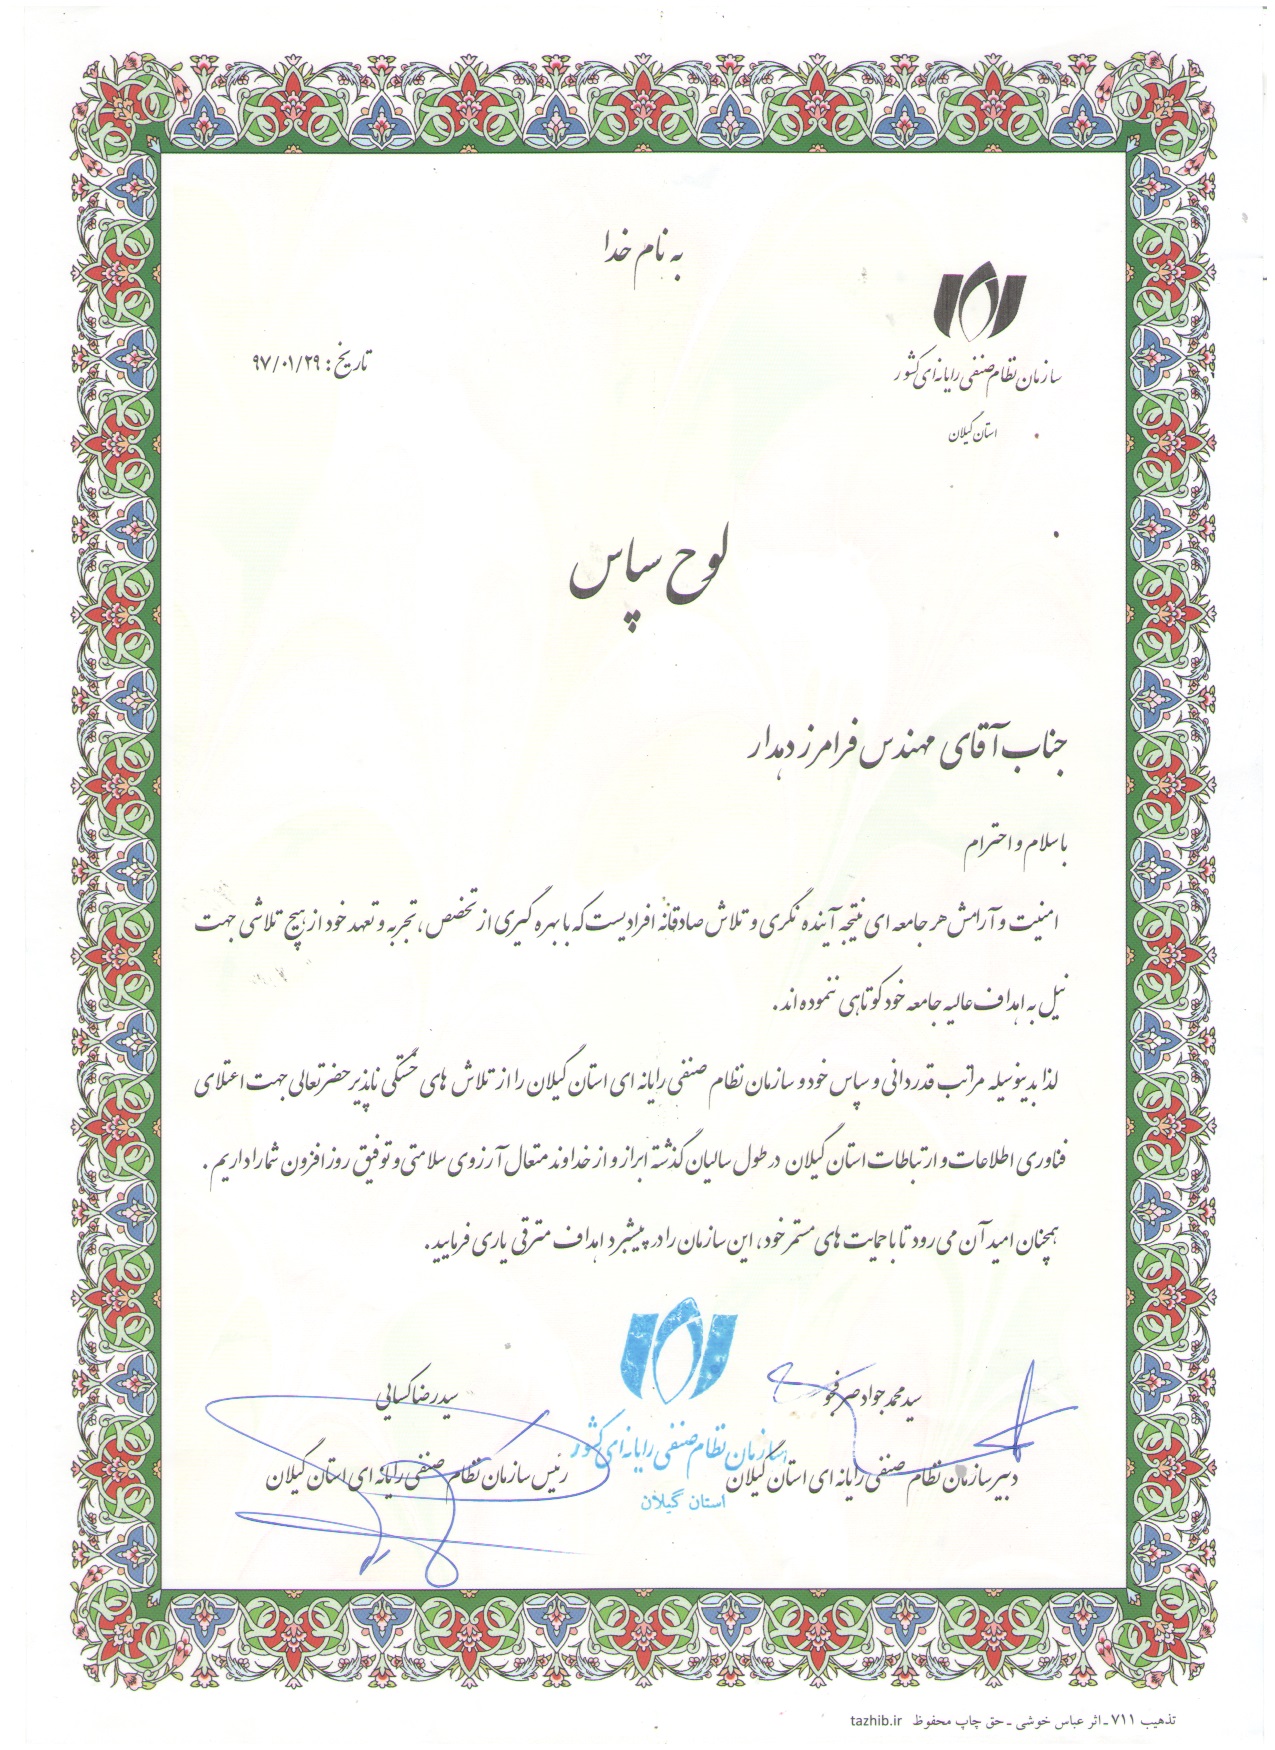 به نام خدا
سازمان نظام صنفی رایانه ای کشور
تاریخ : ۹۷/۰۱/۲۹
استان گیلان
لوح سپاس
جناب آقای مهندس فرامرز دهدار
با سلام و احترام
امنیت و آرامش هر جامعه ای نتیجه آینده نگری و تلاش صادقانه افرادیست که با بهره گیری از تخصص ، تجربه و تعهد خود از هیچ تلاشی جهت
نیل به اهداف عالیه جامعه خود کوتاهی ننموده اند .
لذا بدینوسیله مراتب قدردانی و سپاس خود و سازمان نظام صنفی رایانه ای استان گیلان را از تلاش های خستگی ناپذیر حضرتعالی جهت اعتلای
فناوری اطلاعات و ارتباطات استان گیلان در طول سالیان گذشته ابراز و از خداوند متعال آرزوی سلامتی و توفیق روز افزون شما را داریم .
همچنان امید آن می رود تا با حمایت های مستمر خود ، این سازمان را در پیشبرد اهداف مترقی یاری فرمایید .
سید محمد جواد صرفجو
سید رضا کسایی
سازمان نظام صنفی رایانه ای کشور
دبیر سازمان نظام صنفی رایانه ای استان گیلان
رئیس سازمان نظام صنفی رایانه ای استان گیلان
استان گیلان
تذهیب ۷۱۱ - اثر عباس خوشی - حق چاپ محفوظ tazhib.ir